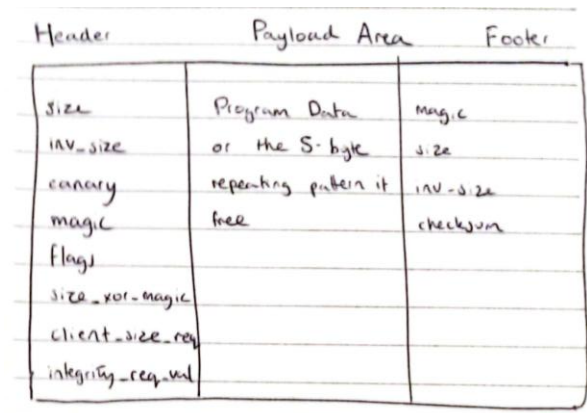 Header Payload Area Footer
size Program Data magic
inv_size or the 5-byte size
canary repeating pattern if inv-size
magic free checksum
flags
size_xor-magic
client_size_req
integrity_req_val